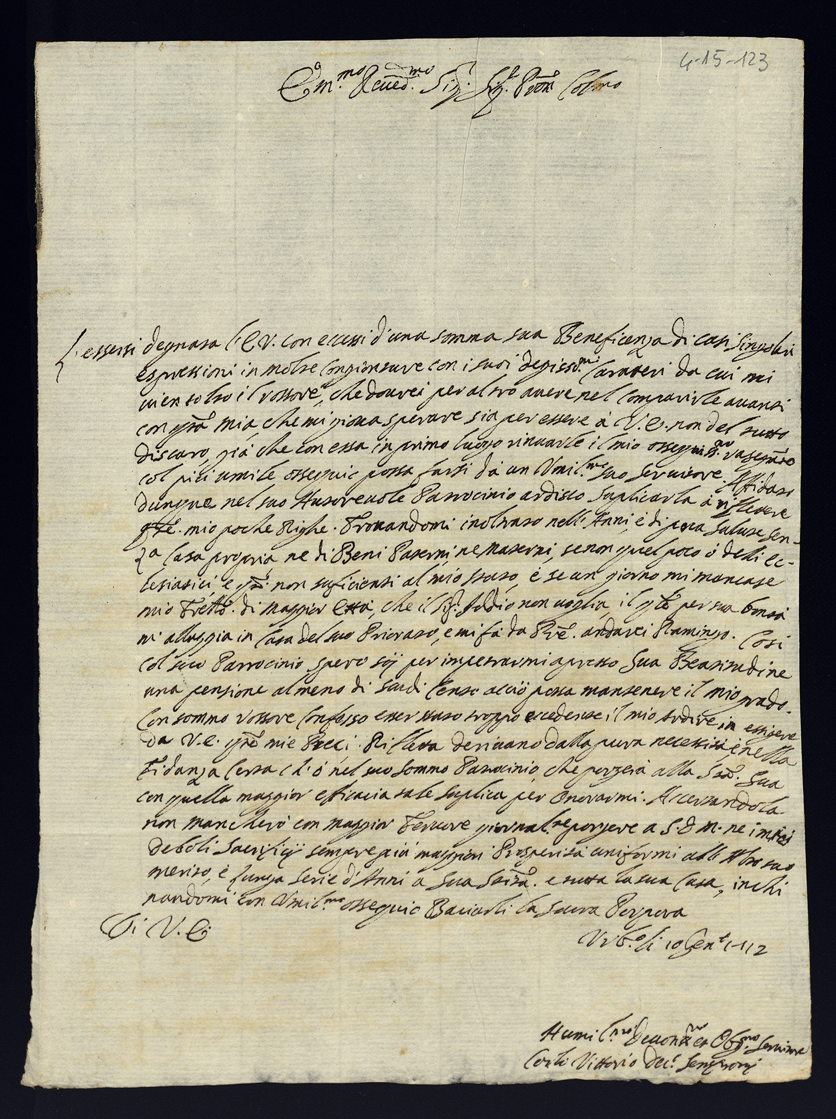 4-15-123
Em.mo e Rev.mo Sig. Sig. Pron Col.mo
L'essersi degnata l'E.V. con eccessi d'una somma sua Beneficenza di così singolari
espressioni in molte congionture con i suoi degniss.mi Caratteri da cui mi
vien tolto il rossore, che dourei per altro auere nel comparirle auanti
con q.ta mia, che mi gioua sperare sia per essere à V.E. non del tutto
discaro, già che con essa in primo luogo rinuarle il mio
col più umile ossequio possa farsi da un Umil.mo suo servitore. Affidato
dunque nel suo Autoreuole Patrocinio ardisco suplicarla à riflettere
q.te mie poche Righe. Trouandomi inoltrato nell'Anni, e di poca salute sen-
za Casa propria, ne di Beni Paterni, ne Materni, se non quel poco ò delli Ec-
lesiastici e q.ti non suficienti al mio stato, e se un giorno mi mancase
mio Frello di maggior età, che il Sig. Iddio non voglia, il q.le per sua bontà
m'alloggia in Casa del suo Priorato, e mi fà da Pre. andarei Ramingo. Così
col suo Patrocinio spero sij per impetrarmi apresso Sua Beatitudine
una pensione almeno di scudi Cento acciò possa mantenere il mio grado.
Con sommo rossore Confesso esser stato troppo eccedente il mio Ardire in essigere
da V.E. q.te mie Preci. Rifletta deriuano dalla pura necessità, e nella
Fidanza Certa ch'ò nel suo sommo Patrocinio, che porgerà alla San.tà Sua
con quella maggior efficacia tale suplica per Onorarmi. Accertandola
non mancherò con maggior Feruore giornal.te porgere a S.D.M. ne i miei
deboli Sacrificij sempre più maggiori Prosperità uniformi all'Alto suo
merito, è lunga serie d'Anni à Sua San.tà e tutta la sua Casa, inchi
nandomi con Umil.mo ossequio Baciarli la Sacra Porpora
Di V.E.
Urb.o li 10 Gen.o 1712
Humil.mo Deuotiss.mo et Obl.mo Seruitore
Carlo Vittorio Sempronij